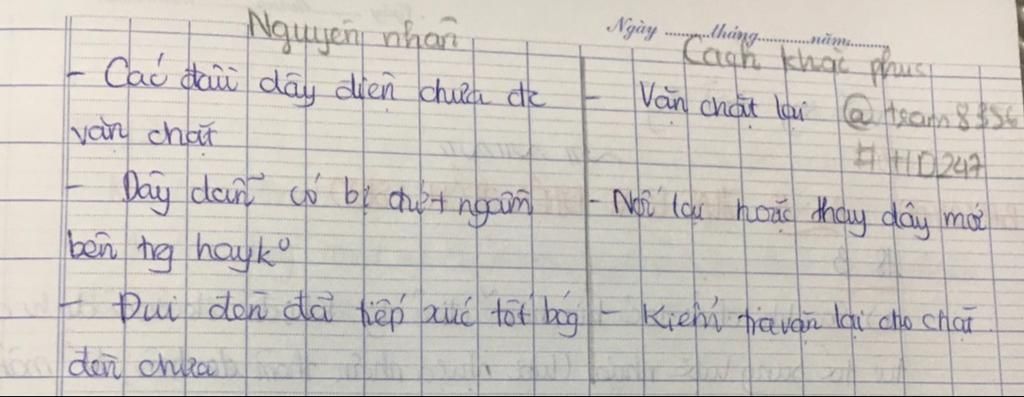 Ngày.........tháng............năm..........
Nguyên nhân
Cách khắc phục
- Các đầu dây điện chưa đc
vặn chặt
- Vặn chặt lại
@team8386
#HD247
- Dây dẫn có bị đứt ngầm
bên tg hay k°
- Nối lại hoặc thay dây mới
- Đui đèn đã tiếp xúc tốt bóng
đèn chưa
- Kiểm tra vặn lại cho chặt